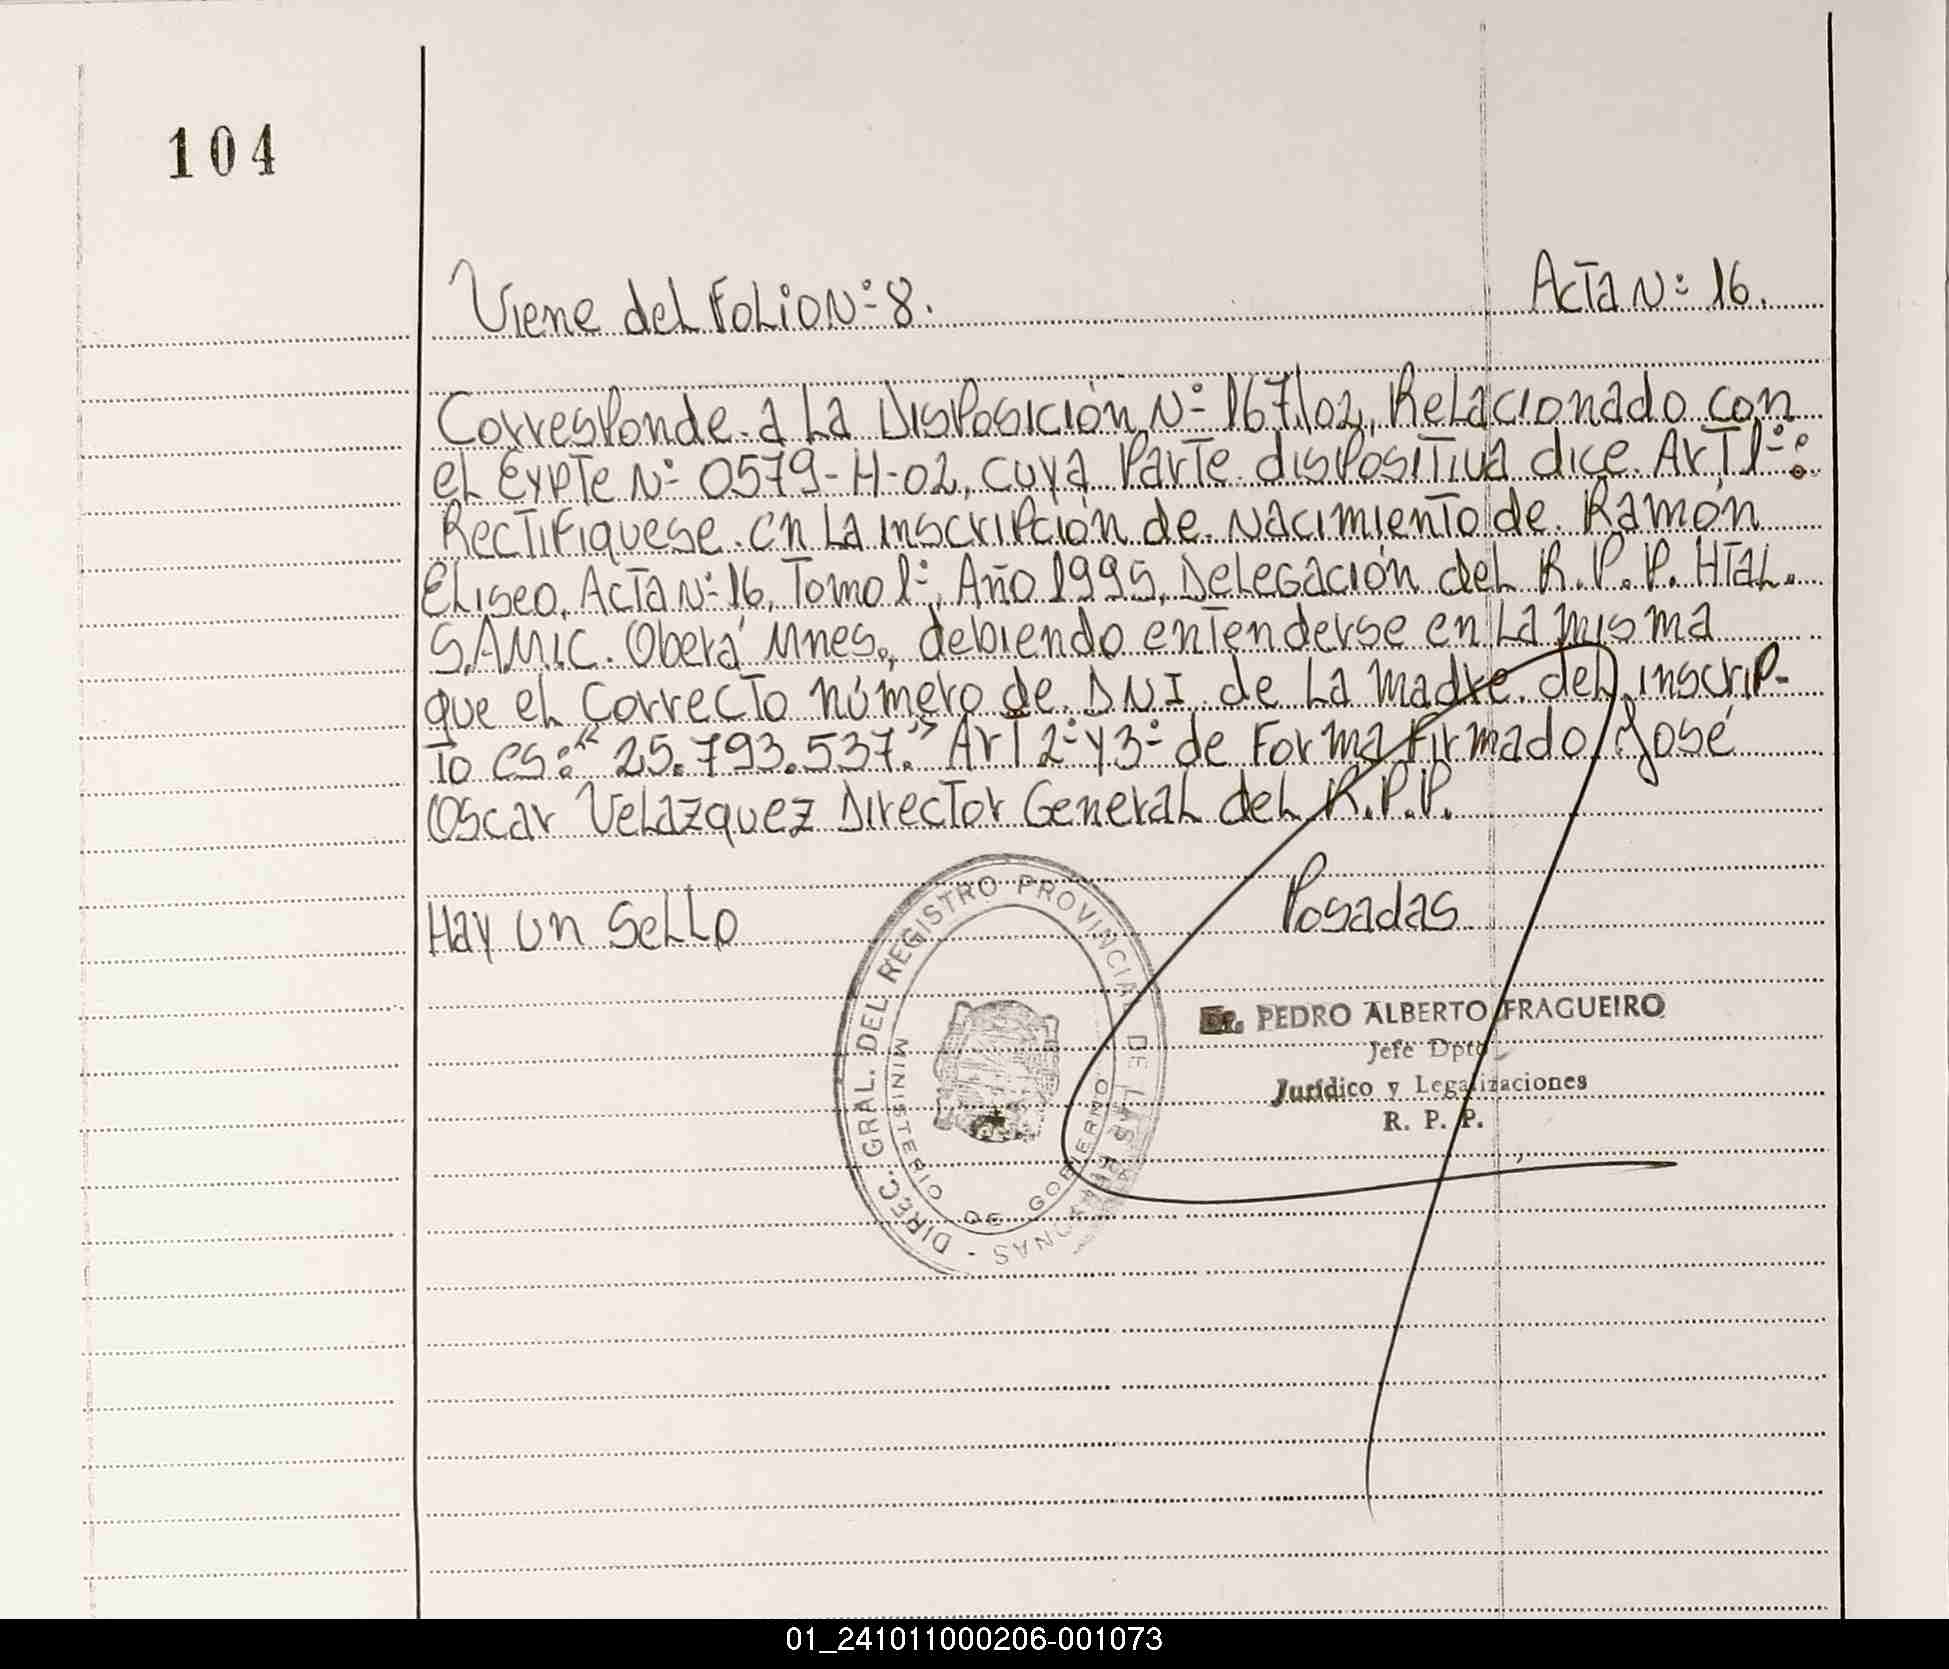 104
Viene del Folio N:8. Acta N: 16.
Corresponde a La Disposición N: 167/02, Relacionado con
el Expte N: 0579-H-02, cuya Parte dispositiva dice Art 1::
Rectifiquese en La inscripción de Nacimiento de Ramón
Eliseo, Acta N: 16, Tomo 1:, Año 1995, Delegación del R.P.P. Htal.
S.AMIC. Oberá Mnes., debiendo entenderse en La misma
que el Correcto número de DNI de La madre del inscrip-
to es: "25.793.537." Art 2: y 3: de Forma Firmado José
Oscar Velazquez Director General del R.P.P.
Hay un Sello Posadas
DIREC. GRAL. DEL REGISTRO PROVINCIAL DE LAS PERSONAS -
MINISTERIO DE GOBIERNO
Dr. PEDRO ALBERTO FRAGUEIRO
Jefe Dpto
Jurídico y Legalizaciones
R. P. P.
01_241011000206-001073